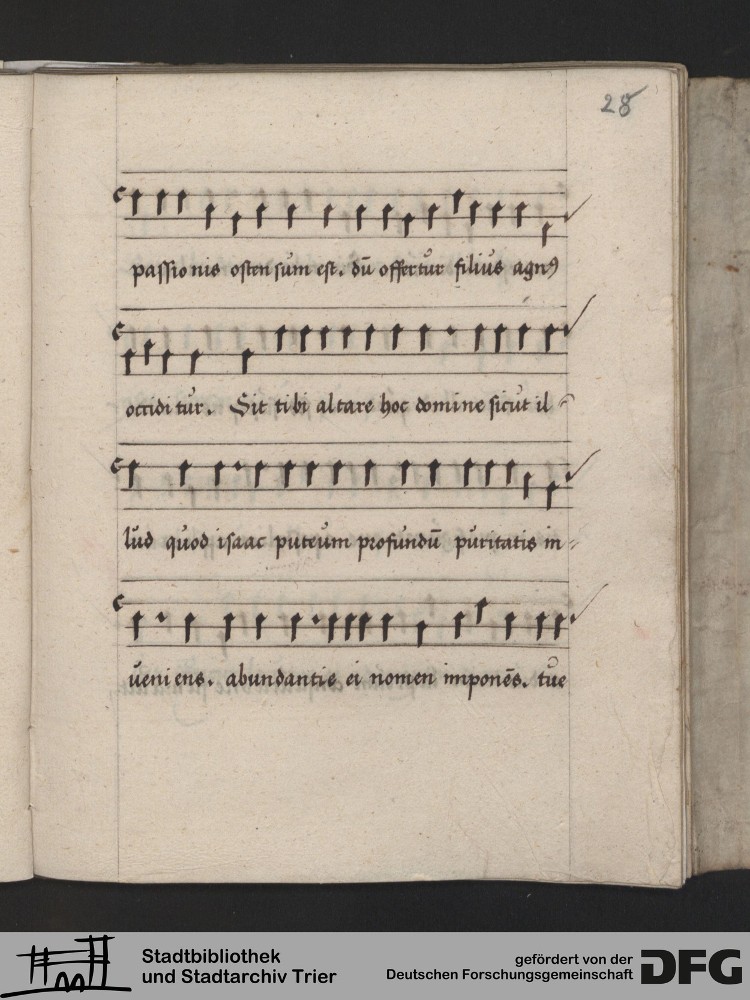 28
passio nis osten sum est. dū offertur filius agnꝰ
occidi tur. Sit ti bi altare hoc domine sicut il-
lud quod isaac puteum profundū puritatis in-
ueni ens. abundantis ei nomen imponēs. tue
Stadtbibliothek
und Stadtarchiv Trier
gefördert von der
Deutschen Forschungsgemeinschaft
DFG